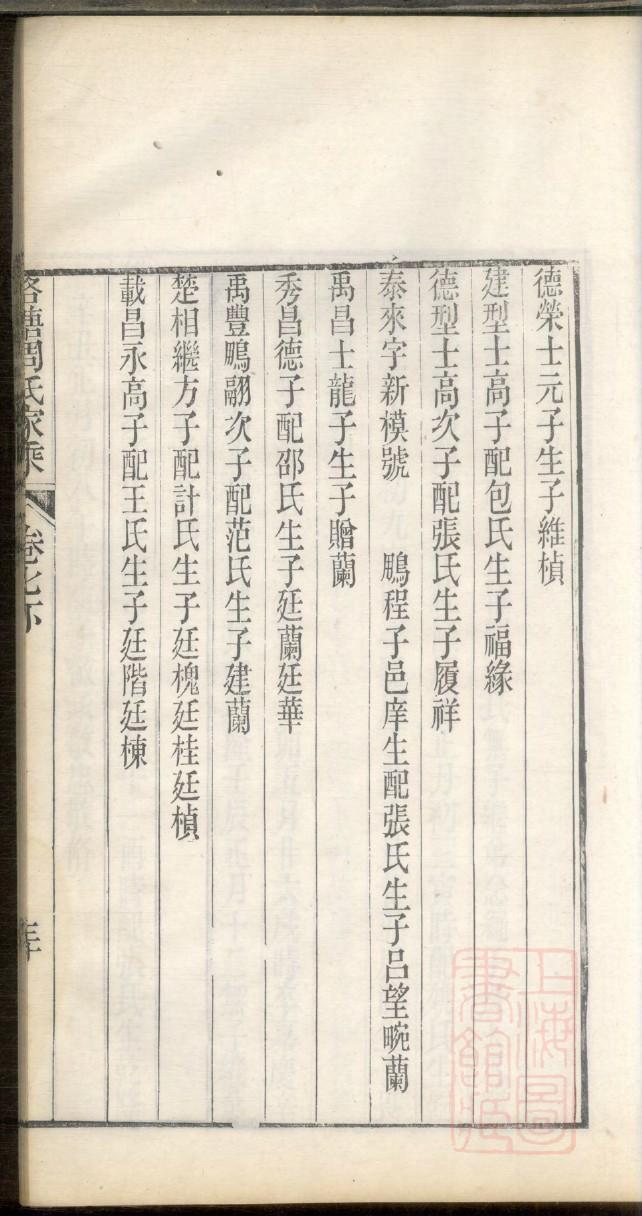 德榮士元子生子維楨
建型士高子配包氏生子福緣
德型士高次子配張氏生子履祥
泰來字新模號 鵬程子邑庠生配張氏生子呂望畹蘭
禹昌士龍子生子贈蘭
秀昌德子配邵氏生子廷蘭廷華
禹豐鵬翮次子配范氏生子建蘭
楚相繼方子配計氏生子廷槐廷桂廷楨
載昌永高子配王氏生子廷階廷棟
周氏家乘 卷七下
上海圖書館藏